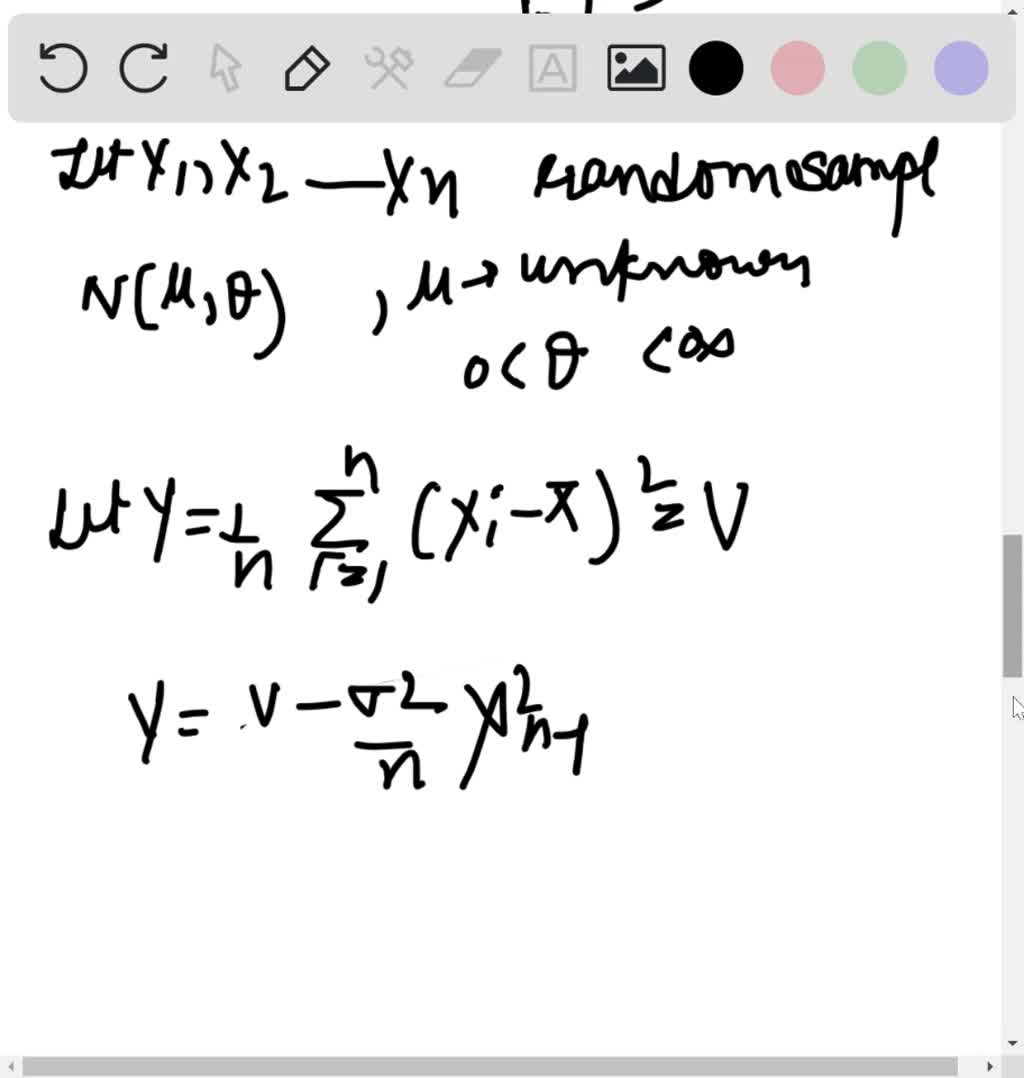 Let X1, X2 — Xn random sampl
N(μ, θ) , μ → unknown
0 < θ < ∞
Let Y = 1/n Σ_{i=1}^{n} (Xi - X̄)^2 = V
Y = V - σ^2/n χ^2_{n-1}